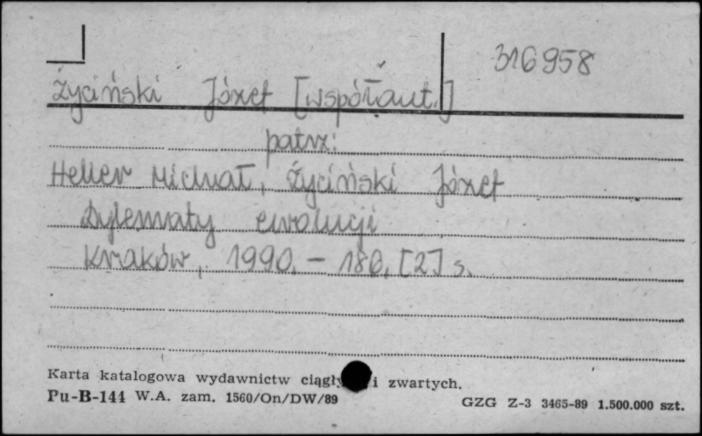 316958
Życiński Józef [współaut.]
patrz:
Heller Michał, Życiński Józef
Dylematy ewolucji
Kraków, 1990. - 180, [2] s.
Karta katalogowa wydawnictw ciągły i zwartych.
Pu-B-144 W.A. zam. 1560/On/DW/89 GZG Z-3 3465-89 1.500.000 szt.